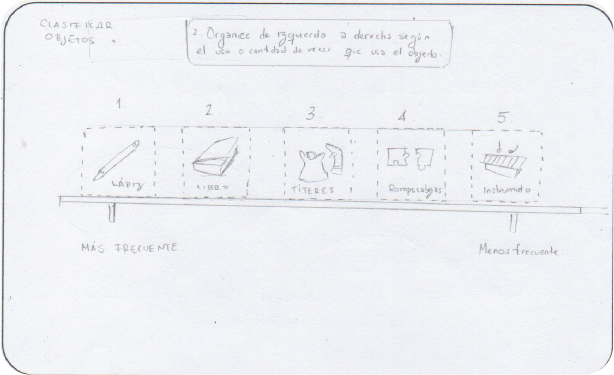 CLASIFICAR
OBJETOS.
2. Organice de izquierda a derecha según
el uso o cantidad de veces que usa el objeto.
1. 2 3. 4. 5
LÁPIZ LIBRO TÍTERES Rompecabezas Instrumento
MÁS FRECUENTE Menos frecuente